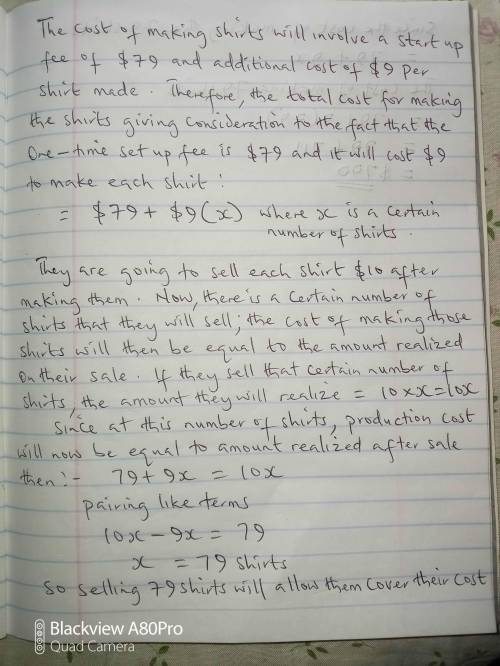 The cost of making shirts will involve a start up
fee of $79 and additional cost of $9 per
shirt made. Therefore, the total cost for making
the shirts giving consideration to the fact that the
One-time set up fee is $79 and it will cost $9
to make each shirt:
= $79 + $9(x) where x is a certain
number of shirts.
They are going to sell each shirt $10 after
making them. Now, there is a certain number of
shirts that they will sell; the cost of making those
shirts will then be equal to the amount realized
on their sale. If they sell that certain number of
shirts, the amount they will realize = 10×x=10x
Since at this number of shirts, production cost
will now be equal to amount realized after sale
then:- 79+9x = 10x
pairing like terms
10x-9x = 79
x = 79 shirts
So selling 79 shirts will allow them cover their cost
Blackview A80Pro
Quad Camera